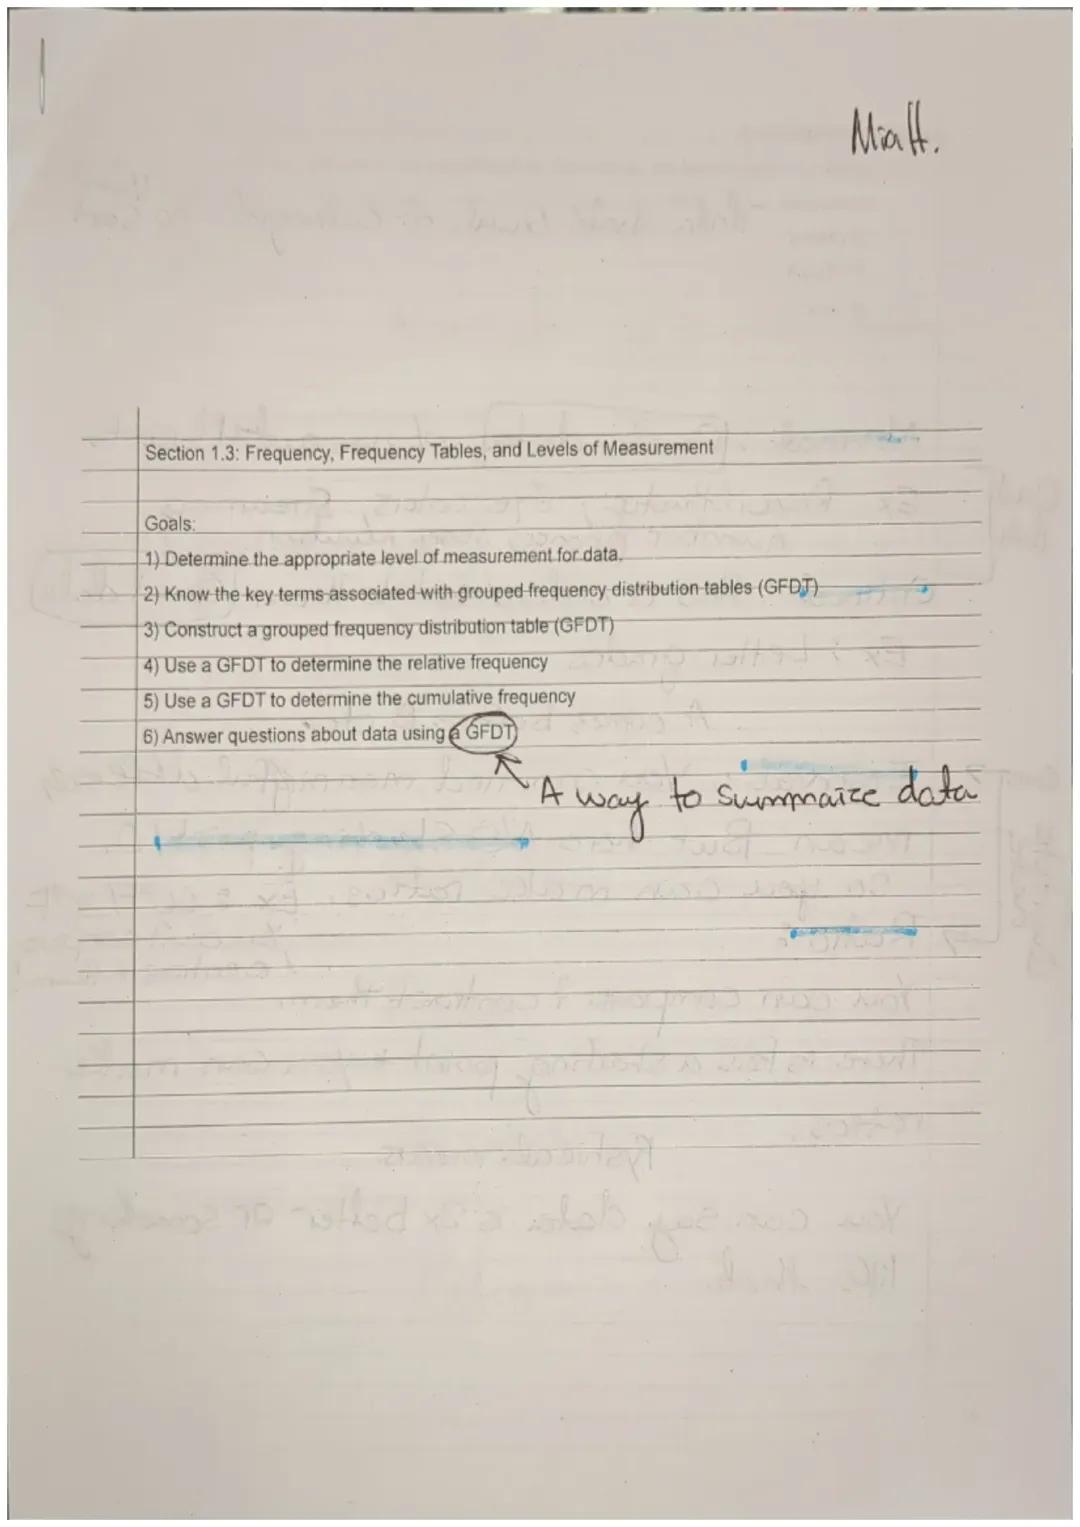 Mia H.
Section 1.3: Frequency, Frequency Tables, and Levels of Measurement
Goals:
1) Determine the appropriate level of measurement for data.
2) Know the key terms associated with grouped frequency distribution tables (GFDT)
3) Construct a grouped frequency distribution table (GFDT)
4) Use a GFDT to determine the relative frequency
5) Use a GFDT to determine the cumulative frequency
6) Answer questions about data using a GFDT
A way to summarize data